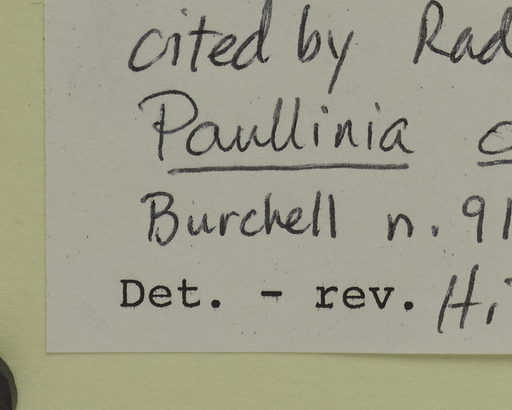 cited by Rad
Paullinia
Burchell n. 91
Det. - rev. Hi